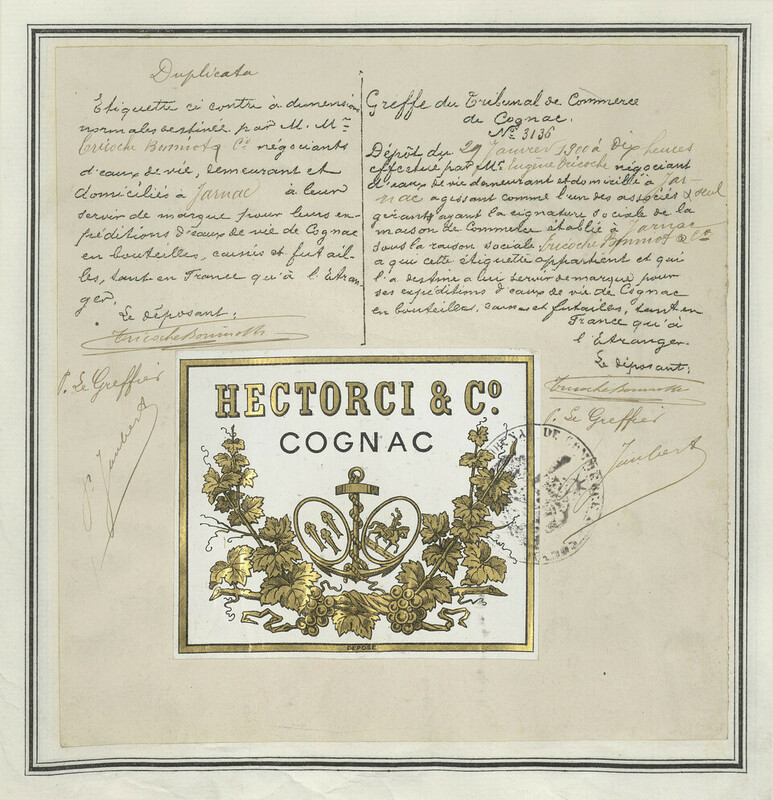 Duplicata
Etiquette ci contre à dimension
normales destinée par M. Mrs
Tricoche Bonniot & Co négociants
d'eaux de vie, demeurant et
domiciliés à Jarnac à leur
servir de marque pour leurs ex-
péditions d'eaux de vie de Cognac
en bouteilles, caisses et futail-
les, tant en France qu'à l'Etran-
ger.
Le déposant:
P. Le Greffier
Jaubert
Greffe du Tribunal de Commerce
de Cognac.
No 3136
Dépôt du 29 Janvier 1900 à dix heures
effectué par Mr Eugène Tricoche négociant
d'eaux de vie demeurant et domicilié à Jar-
nac agissant comme l'un des associés & seul
gérant ayant la signature sociale de la
maison de Commerce établie à Jarnac
sous la raison sociale Tricoche Bonniot & Co
a qui cette étiquette appartient et qui
l'a destiné a lui servir de marque pour
ses expéditions d'eaux de vie de Cognac
en bouteilles, caisses et futailles, tant en
France qu'à
l'Etranger.
Le déposant:
P. Le Greffier
Jaubert
HECTORCI & Co.
COGNAC
DÉPOSÉ
DE COMMERCE